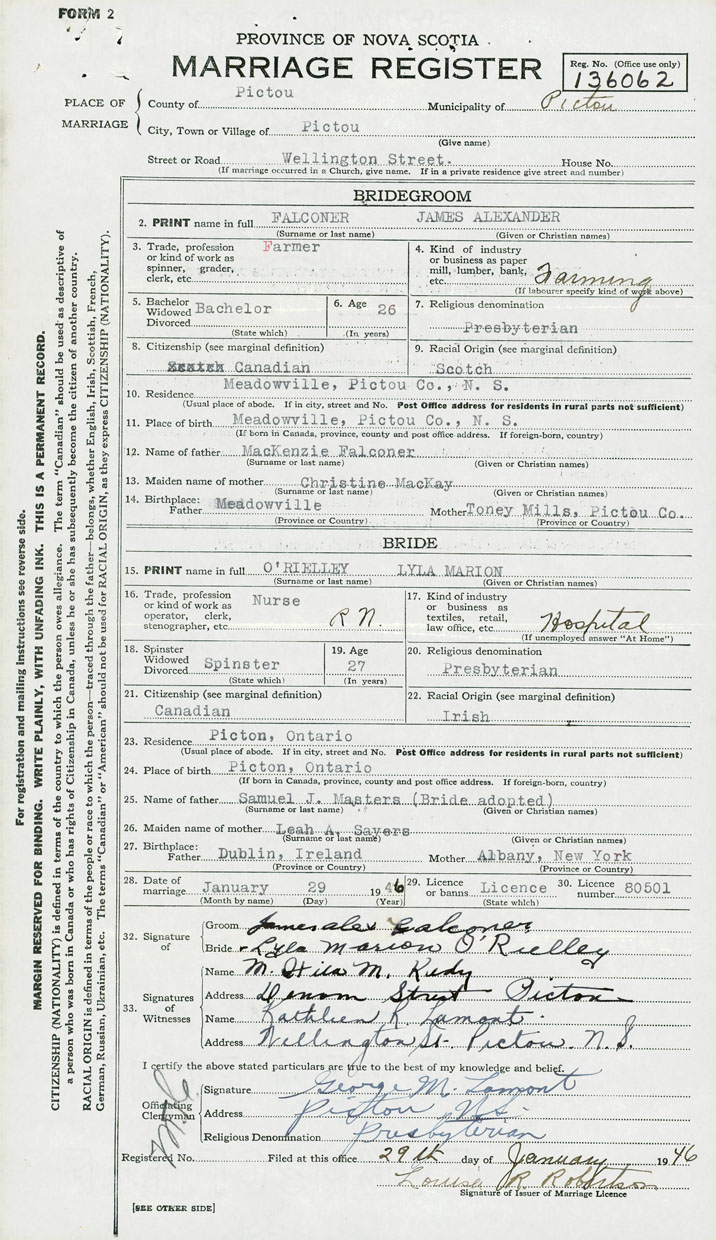 FORM 2
PROVINCE OF NOVA SCOTIA
MARRIAGE REGISTER
Reg. No. (Office use only)
136062
PLACE OF MARRIAGE
County of Pictou Municipality of Pictou
City, Town or Village of Pictou
(Give name)
Street or Road Wellington Street. House No.
(If marriage occurred in a Church, give name. If in a private residence give street and number)
BRIDEGROOM
2. PRINT name in full FALCONER JAMES ALEXANDER
(Surname or last name) (Given or Christian names)
3. Trade, profession or kind of work as spinner, grader, clerk, etc. Farmer
4. Kind of industry or business as paper mill, lumber, bank, etc. Farming
(If labourer specify kind of work above)
5. Bachelor Widowed Divorced Bachelor
(State which)
6. Age 26
(In years)
7. Religious denomination
Presbyterian
8. Citizenship (see marginal definition)
Canadian
9. Racial Origin (see marginal definition)
Scotch
10. Residence Meadowville, Pictou Co., N. S.
(Usual place of abode. If in city, street and No. Post Office address for residents in rural parts not sufficient)
11. Place of birth Meadowville, Pictou Co., N. S.
(If born in Canada, province, county and post office address. If foreign-born, country)
12. Name of father MacKenzie Falconer
(Surname or last name) (Given or Christian names)
13. Maiden name of mother Christine MacKay
(Surname or last name) (Given or Christian names)
14. Birthplace: Father Meadowville Mother Toney Mills, Pictou Co.
(Province or Country) (Province or Country)
BRIDE
15. PRINT name in full O'RIELLEY LYLA MARION
(Surname or last name) (Given or Christian names)
16. Trade, profession or kind of work as operator, clerk, stenographer, etc. Nurse R N.
17. Kind of industry or business as textiles, retail, law office, etc. Hospital
(If unemployed answer "At Home")
18. Spinster Widowed Divorced Spinster
(State which)
19. Age
27
(In years)
20. Religious denomination
Presbyterian
21. Citizenship (see marginal definition)
Canadian
22. Racial Origin (see marginal definition)
Irish
23. Residence Picton, Ontario
(Usual place of abode. If in city, street and No. Post Office address for residents in rural parts not sufficient)
24. Place of birth Picton, Ontario
(If born in Canada, province, county and post office address. If foreign-born, country)
25. Name of father Samuel J. Masters (Bride adopted)
(Surname or last name) (Given or Christian names)
26. Maiden name of mother Leah A. Sayers
(Surname or last name) (Given or Christian names)
27. Birthplace: Father Dublin, Ireland Mother Albany, New York
(Province or Country) (Province or Country)
28. Date of marriage January 29 1946
(Month by name) (Day) (Year)
29. Licence or banns Licence
(State which)
30. Licence number 80501
32. Signature of
Groom James alex Falconer
Bride Lyla Marion O'Rielley
33. Signatures of Witnesses
Name M.
Address Street Pictou
Name Kathleen R Lamont.
Address Wellington St. Pictou. N. S.
I certify the above stated particulars are true to the best of my knowledge and belief.
Officiating Clergyman
Signature George M. Lamont
Address Pictou N.S.
Religious Denomination Presbyterian
Registered No. Filed at this office 29th day of January 1946
Louise R. Robertson
Signature of Issuer of Marriage Licence
[SEE OTHER SIDE]
For registration and mailing instructions see reverse side.
MARGIN RESERVED FOR BINDING. WRITE PLAINLY, WITH UNFADING INK. THIS IS A PERMANENT RECORD.
CITIZENSHIP (NATIONALITY) is defined in terms of the country to which the person owes allegiance. The term "Canadian" should be used as descriptive of
a person who was born in Canada or who has rights of Citizenship in Canada, unless he or she has subsequently become the citizen of another country.
RACIAL ORIGIN is defined in terms of the people or race to which the person—traced through the father—belongs, whether English, Irish, Scottish, French,
German, Russian, Ukrainian, etc. The terms "Canadian" or "American" should not be used for RACIAL ORIGIN, as they express CITIZENSHIP (NATIONALITY).